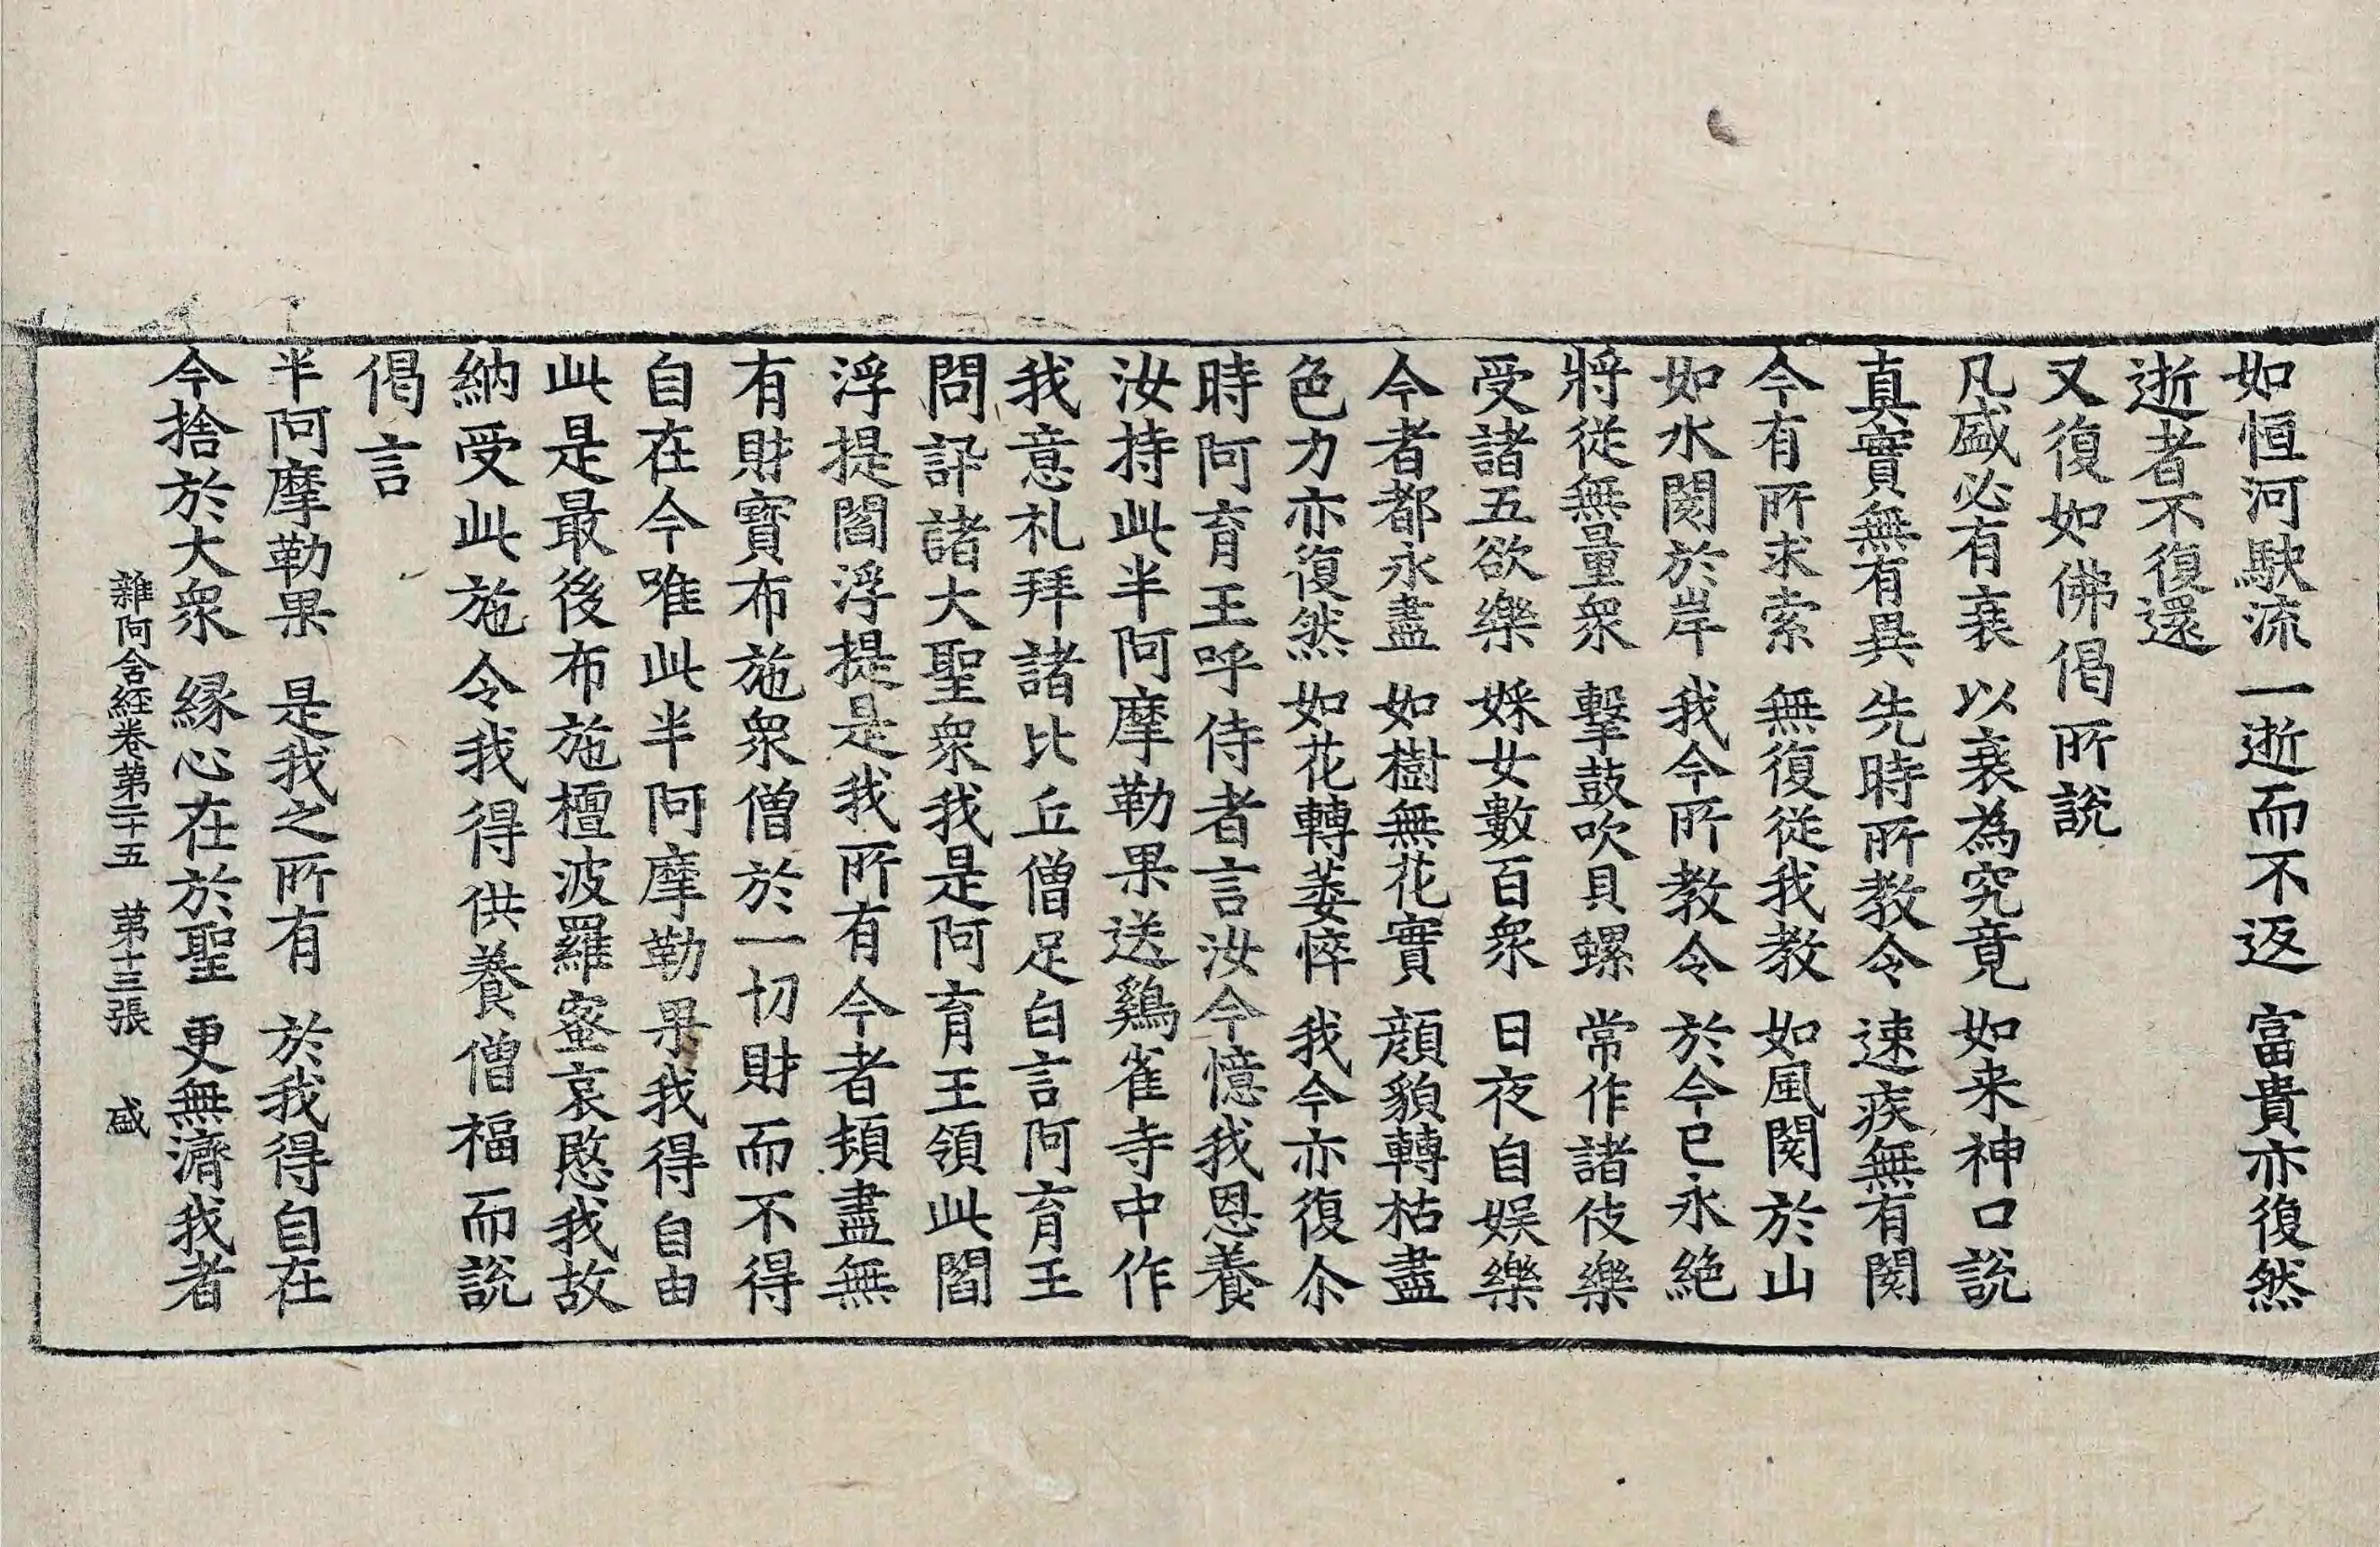 如恒河駛流一逝而不返　富貴亦復然
逝者不復還
又復如佛偈所說
凡盛必有衰　以衰為究竟　如来神口說
真實無有異　先時所教令　速疾無有閡
今有所求索　無復從我教　如風閡於山
如水閡於岸　我今所教令　於今已永絶
將從無量衆　擊鼓吹貝螺　常作諸伎樂
受諸五欲樂　婇女數百衆　日夜自娱樂
今者都永盡　如樹無花實　顔貌轉枯盡
色力亦復然　如花轉萎悴　我今亦復尒
時阿育王呼侍者言汝今憶我恩養
汝持此半阿摩勒果送鷄雀寺中作
我意礼拜諸比丘僧足白言阿育王
問訊諸大聖衆我是阿育王領此閻
浮提閻浮提是我所有今者頓盡無
有財寳布施衆僧於一切財而不得
自在今唯此半阿摩勒果我得自由
此是最後布施檀波羅蜜哀愍我故
納受此施令我得供養僧福而說
偈言
半阿摩勒果　是我之所有　於我得自在
今捨於大衆　縁心在於聖　更無濟我者
雜阿含經卷第二十五　第十三張　盛